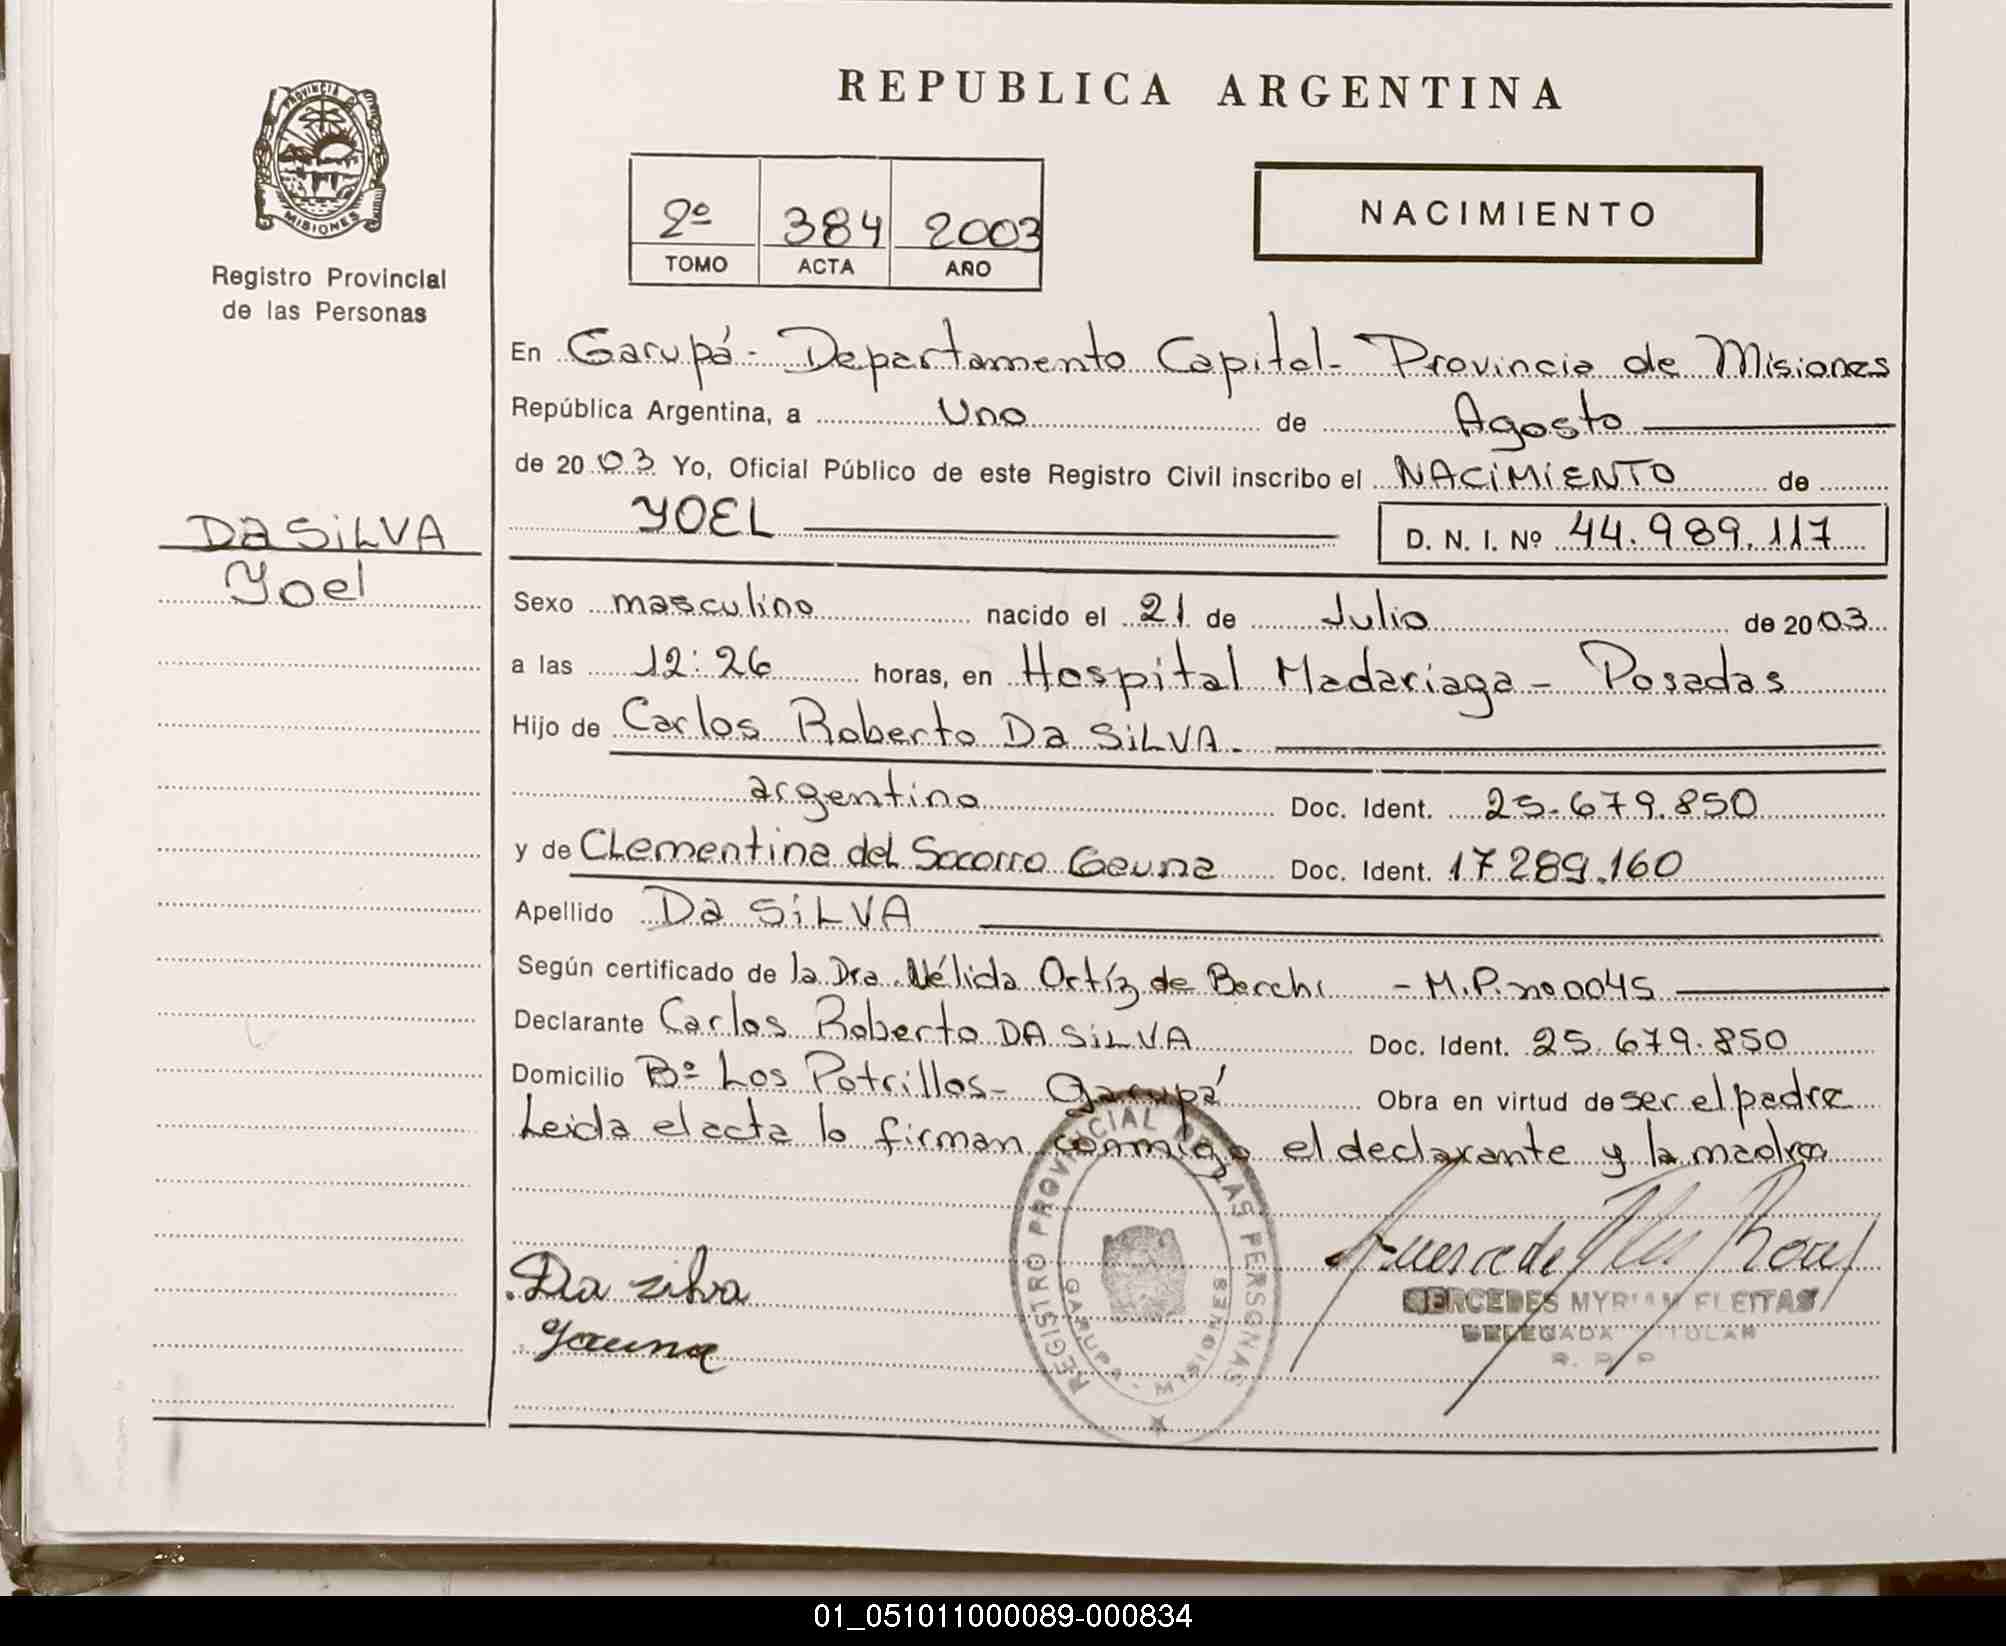 REPUBLICA ARGENTINA
PROVINCIA DE
MISIONES
Registro Provincial
de las Personas
2º 384 2003
TOMO ACTA AÑO
NACIMIENTO
En Garupá - Departamento Capital - Provincia de Misiones
República Argentina, a Uno de Agosto
de 2003 Yo, Oficial Público de este Registro Civil inscribo el NACIMIENTO de
YOEL D. N. I. Nº 44.989.117
DA SILVA
Yoel
Sexo masculino nacido el 21 de Julio de 2003
a las 12:26 horas, en Hospital Madariaga - Posadas
Hijo de Carlos Roberto DA SILVA.
argentino Doc. Ident. 25.679.850
y de Clementina del Socorro Geuna Doc. Ident. 17 289.160
Apellido DA SILVA
Según certificado de la Dra. Nélida Ortíz de Berchi - M.P. nº 0045
Declarante Carlos Roberto DA SILVA Doc. Ident. 25.679.850
Domicilio Bº Los Potrillos - Garupá Obra en virtud de ser el padre
Leida el acta lo firman conmigo el declarante y la madre
REGISTRO PROVINCIAL DE LAS PERSONAS
GARUPA - MISIONES
Da silva
MERCEDES MYRIAM FLEITAS
DELEGADA TITULAR
R. P. P
01_051011000089-000834